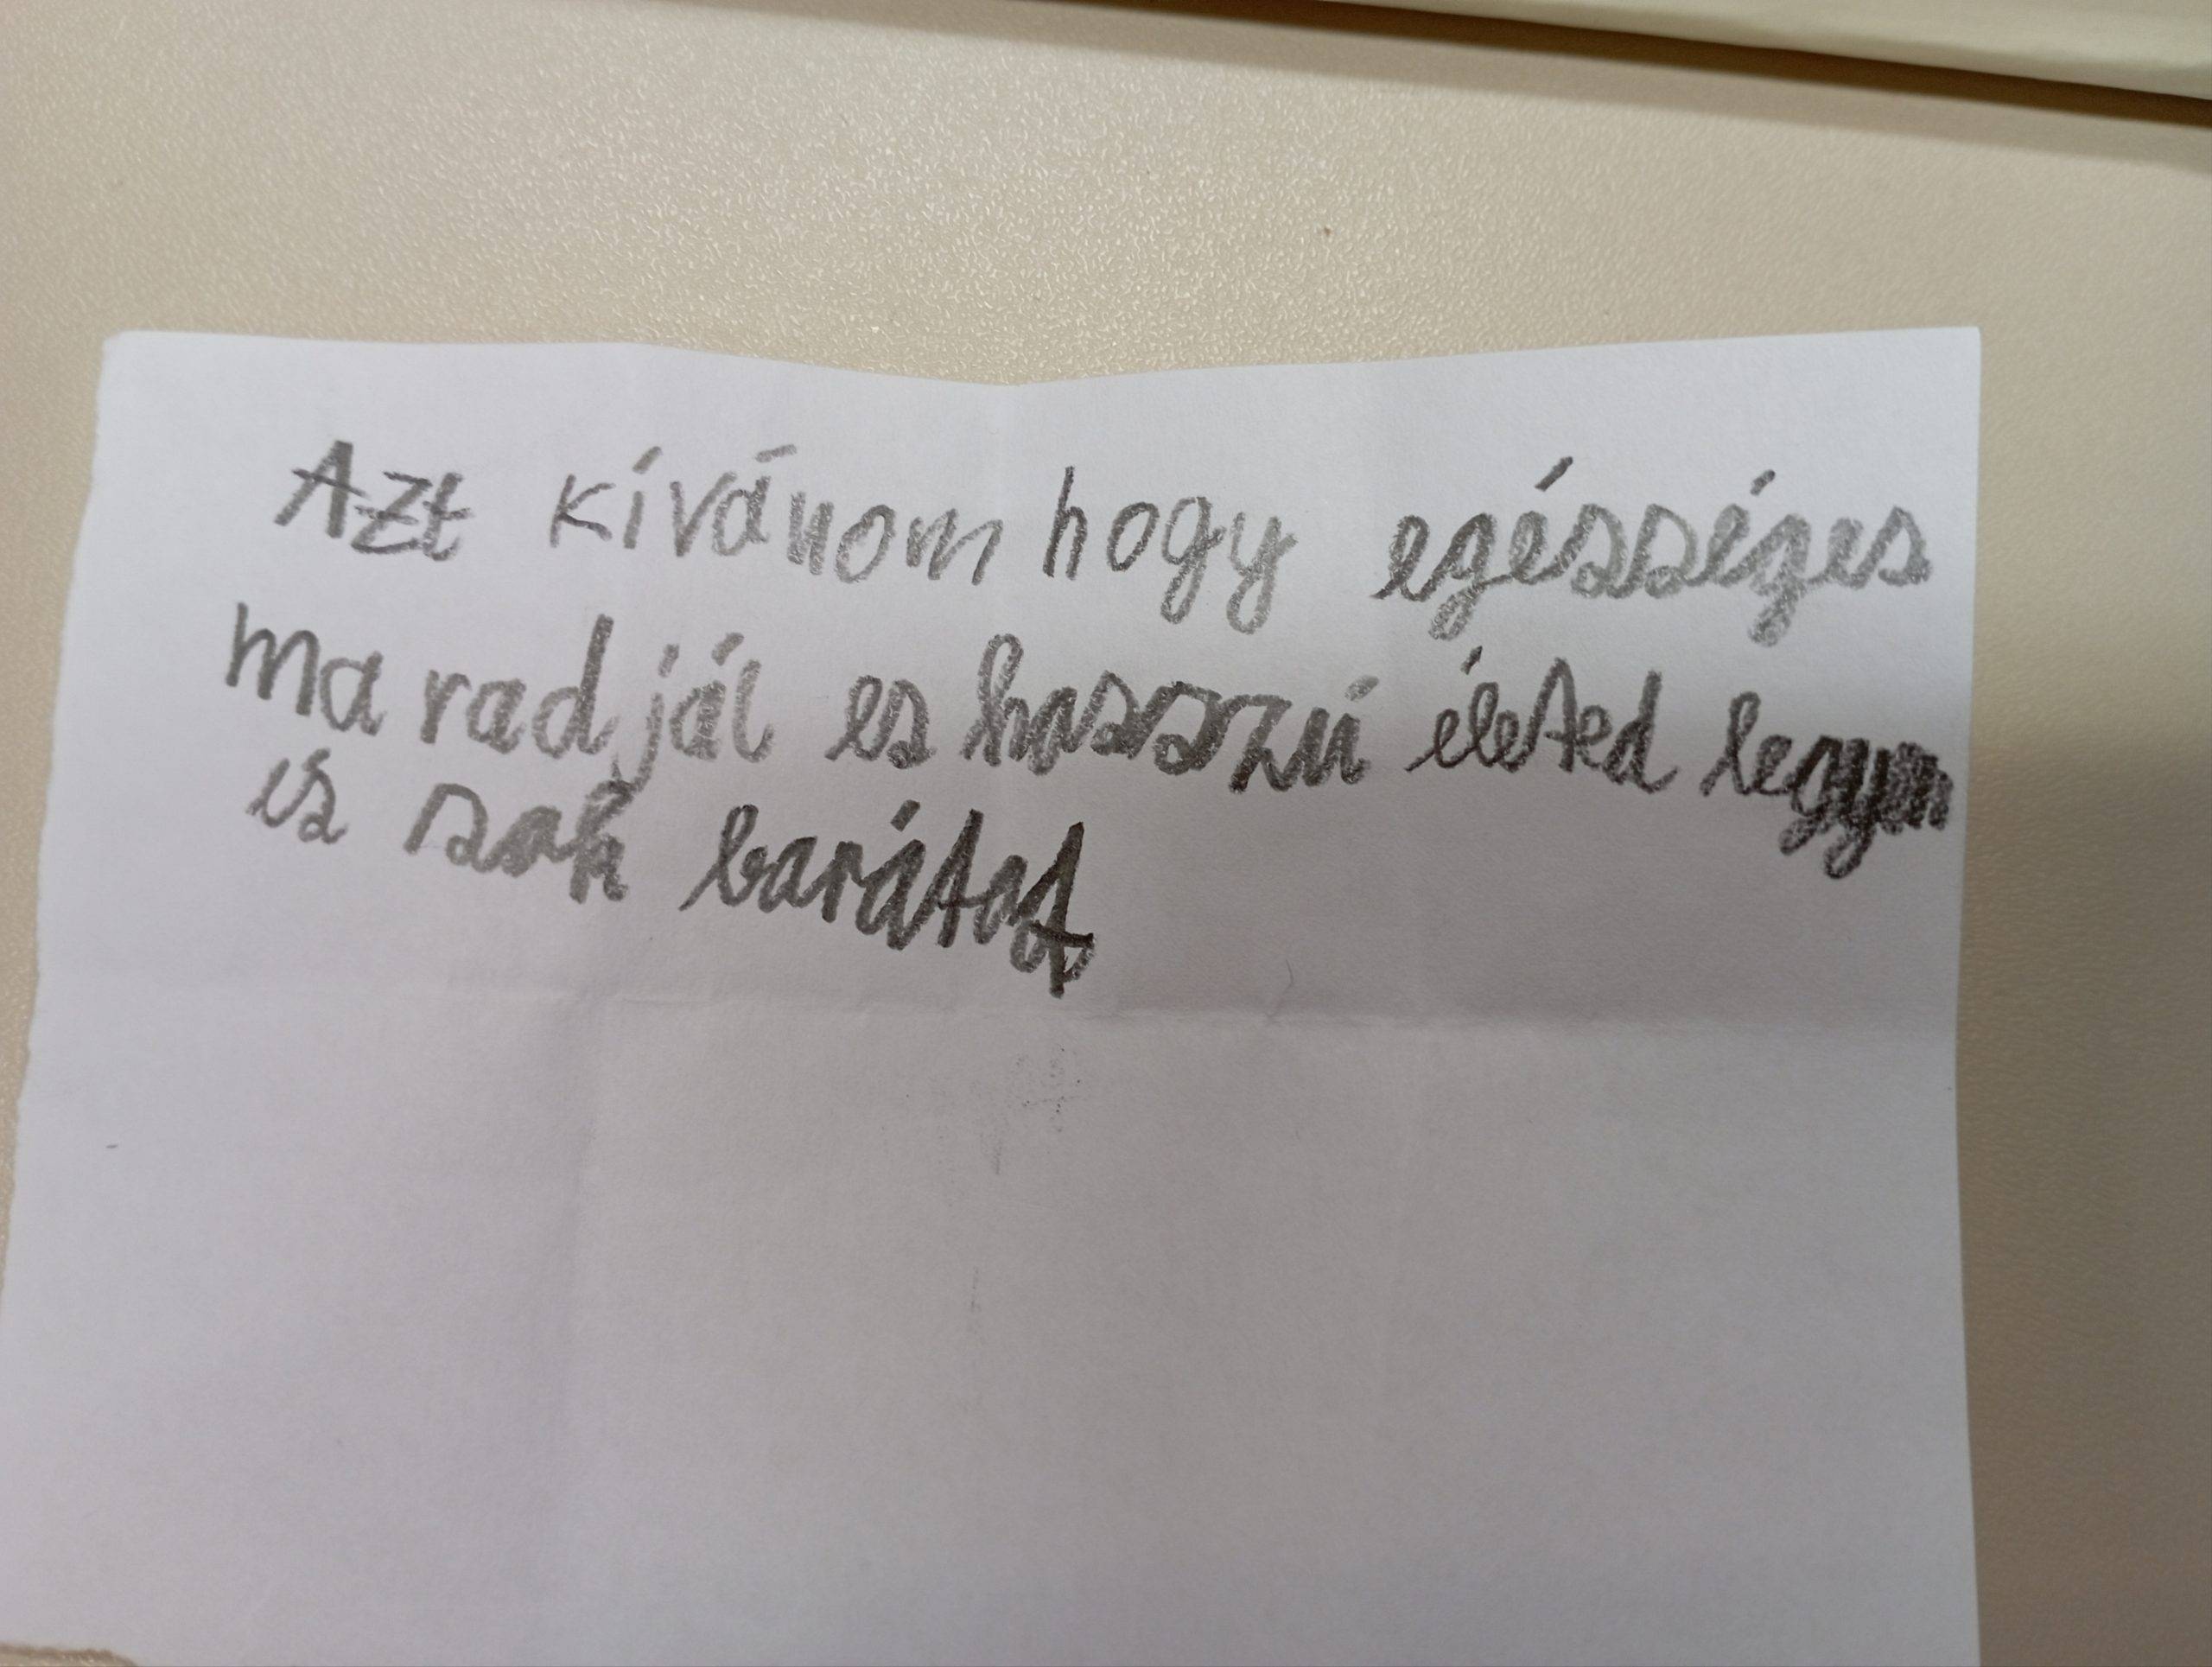 Azt kívánom hogy egésséges
maradjál es hasszú életed legyen
és sok barátot